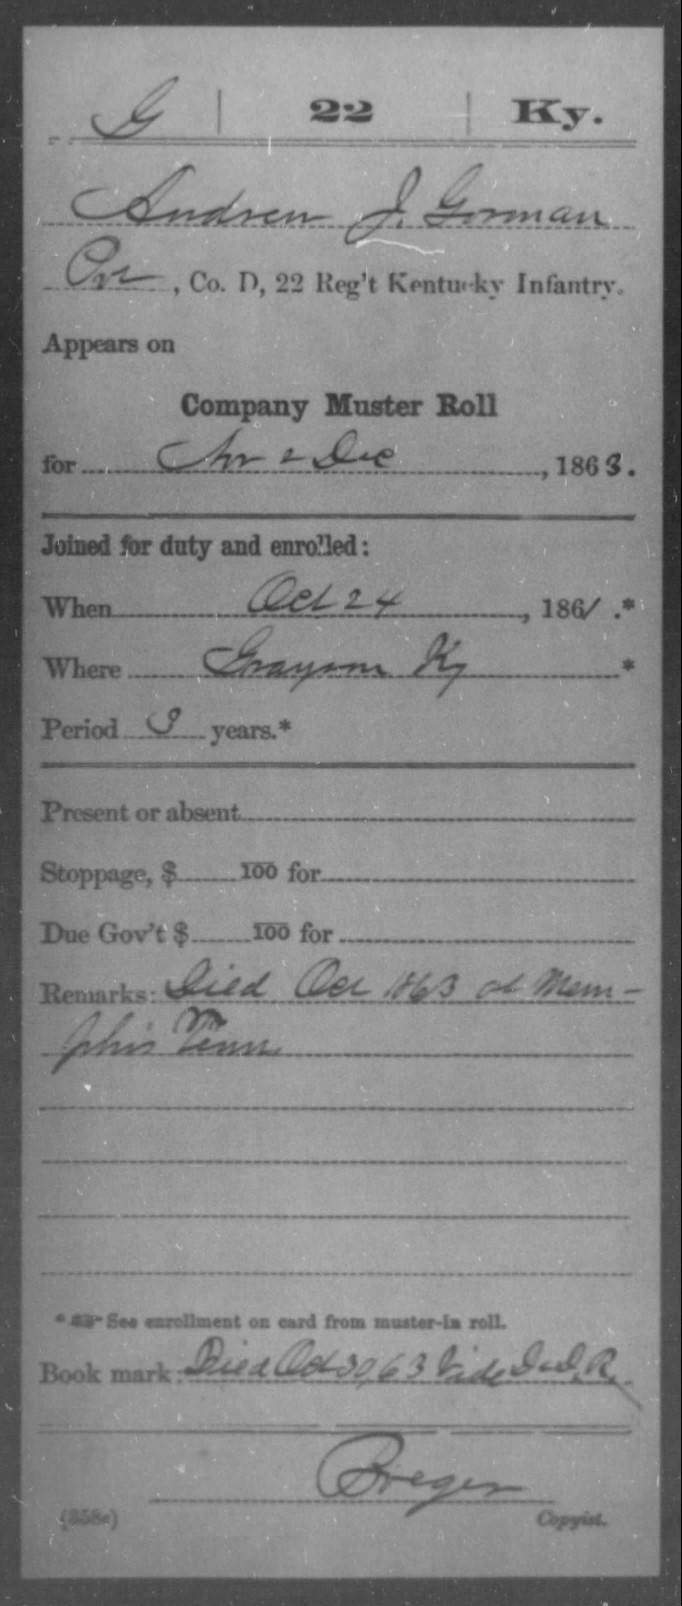 G | 22 | Ky.
Andrew J. Gorman
Pvt, Co. D, 22 Reg't Kentucky Infantry.
Appears on
Company Muster Roll
for Nov & Dec, 1863.
Joined for duty and enrolled:
When Oct 24, 1861.*
Where Grayson Ky*
Period 3 years.*
Present or absent
Stoppage, $ 100 for
Due Gov't $ 100 for
Remarks: Died Oct 1863 at Mem-
phis Tenn
* See enrollment on card from muster-in roll.
Book mark: Died Oct 30, 63 Vide R.
(358c) Copyist.